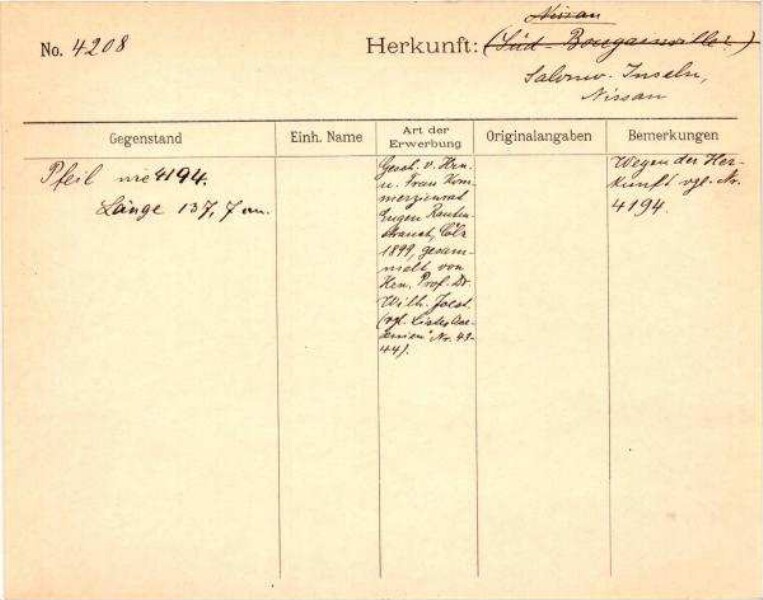 Nissan
No. 4208 Herkunft: (Süd-Bougainville.)
Salomo-Inseln,
Nissan
Gegenstand
Einh. Name
Art der
Erwerbung
Originalangaben
Bemerkungen
Pfeil wie 4194.
Länge 137,7 cm.
Gesch. v. Hrn.
u. Frau Kom-
merzienrat
Eugen Rauten-
strauch, Cöln
1899, gesam-
melt von
Hrn. Prof. Dr.
Wilh. Joest.
(vgl. Liste "Oze-
anien" Nr. 43-
44).
Wegen der Her-
kunft vgl. Nr.
4194.